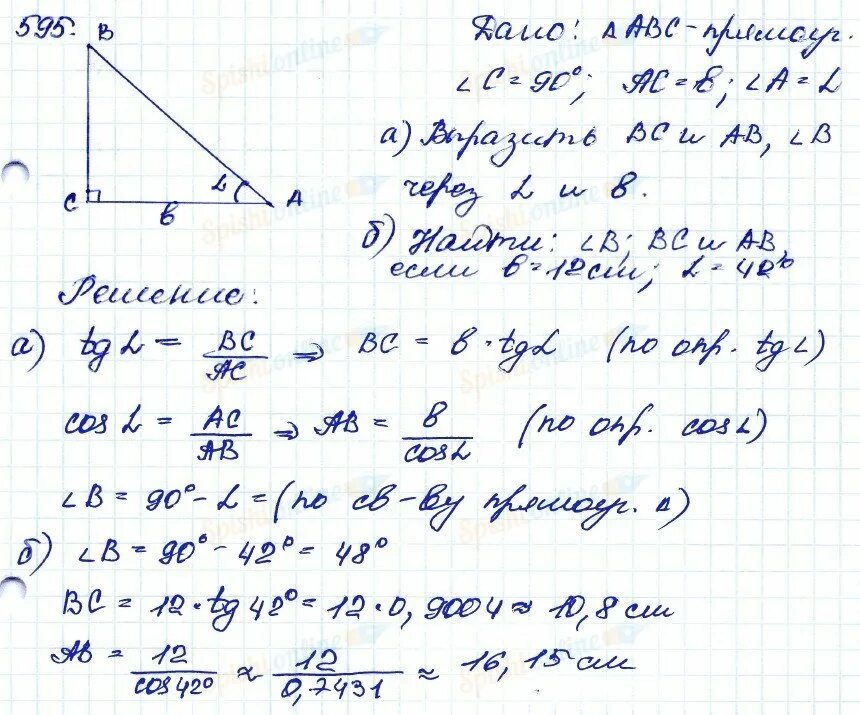 595.
B
C
A
L
в
Дано: ΔABC - прямоуг.
∠C = 90°; AC = в; ∠A = L
а) Выразить BC и AB, ∠B
через L и в.
б) Найти: ∠B; BC и AB,
если в = 12 см; L = 42°
Решение:
а) tg L = BC/AC ⇒ BC = в · tg L (по опр. tg L)
cos L = AC/AB ⇒ AB = в/cos L (по опр. cos L)
∠B = 90° - L = (по св-ву прямоуг. Δ)
б) ∠B = 90° - 42° = 48°
BC = 12 · tg 42° = 12 · 0,9004 ≈ 10,8 см
AB = 12/cos 42° ≈ 12/0,7431 ≈ 16,15 см
Spishi.online